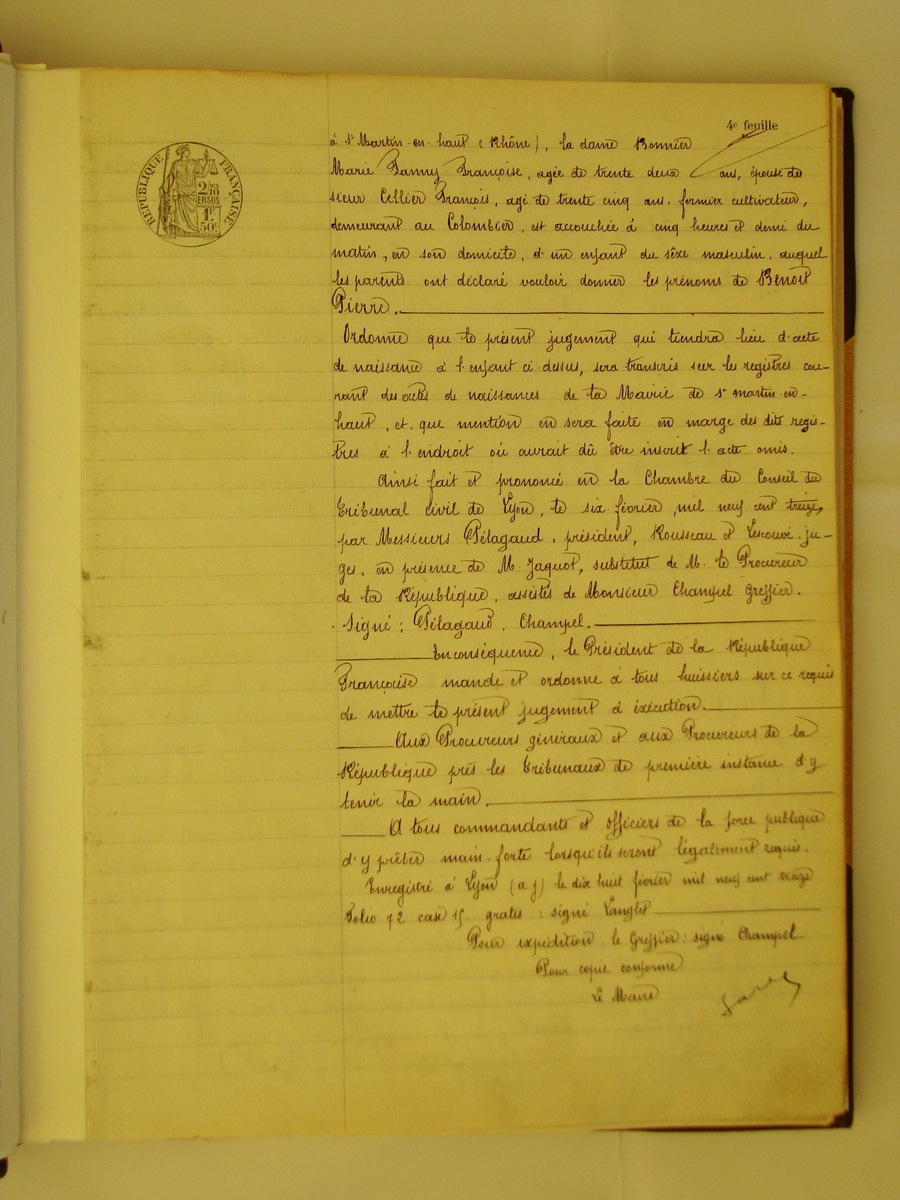 4e feuille
RÉPUBLIQUE FRANÇAISE
2 10mes
EN SUS
1F
50c
à St Martin-en-haut (Rhône), la dame Bonnier
Marie Fanny Françoise, agée de trente deux ans, épouse de
sieur Cellier François, agé de trente cinq ans, fermier cultivateur,
demeurant au Colombier, est accouchée à cinq heures et demi du
matin, en son domicile, d'un enfant du sèxe masculin, auquel
les parents ont déclaré vouloir donner les prénoms de Benoit
Pierre.
Ordonne que le présent jugement qui tiendra lieu d'acte
de naissance à l'enfant ci dessus, sera transcris sur les registres cou-
rant des actes de naissances de la Mairie de St martin-en-
haut, et que mention en sera faite en marge des dits regis-
tres à l'endroit où aurait dû être inscrit l'acte omis.
Ainsi fait et prononcé en la Chambre du Conseil du
Tribunal civil de Lyon, le six février, mil neuf cent treize,
par Messieurs Pélagaud, président, Rousseau et ju-
ges, en présence de M. Jaquot, substitut de M. le Procureur
de la République, assistés de Monsieur Champel Greffier.
Signé : Pélagaud, Champel.
En conséquence, le Président de la République
Françoise mande et ordonne à tous huissiers sur ce requis
de mettre le présent jugement à éxécution
Aux Procureurs généraux et aux Procureurs de la
République près les Tribunaux de première instance d'y
tenir la main.
A tous commandants et officiers de la force publique
d'y prêter main-forte lorsqu'ils seront légalement requis.
Enregistré à Lyon (a j) le dix huit février mil neuf cent treize
Folio 72 case 15. gratis : signé Langlet
Pour expédition le Greffier : signé Champel
Pour copie conforme
Le Maire